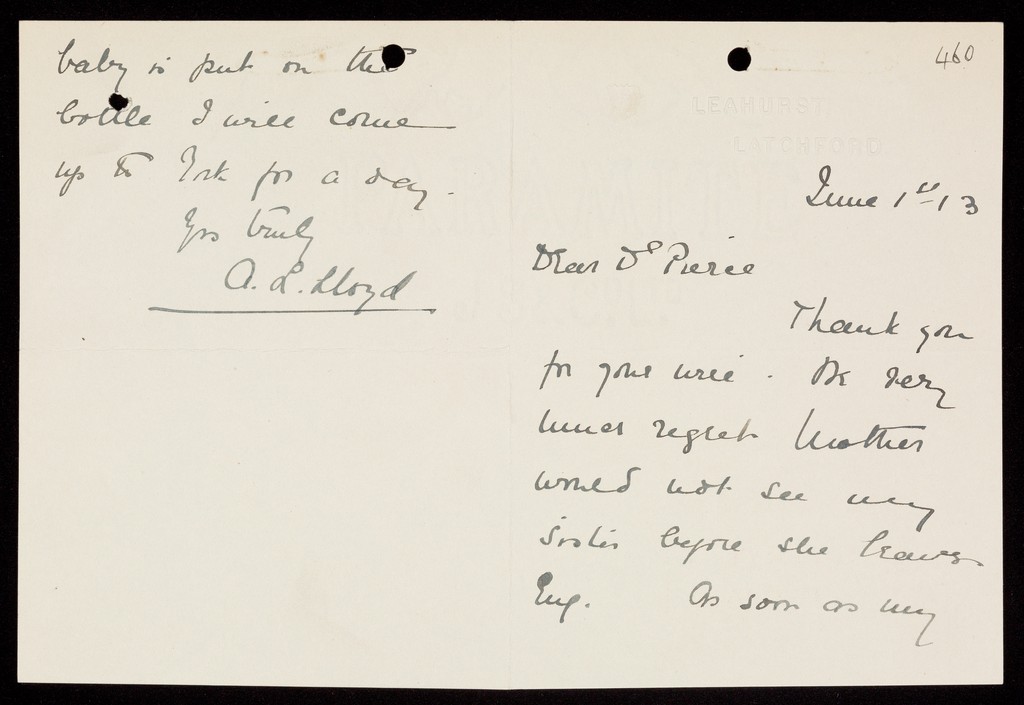 460
LEAHURST
LATCHFORD
June 1st 13
Dear Dr Pierce
Thank you
for your wire. We very
much regret Mother
would not see my
sister before she leaves
Eng. As soon as my
baby is put on the
bottle I will come
up to York for a day.
Yrs truly
A. L. Lloyd